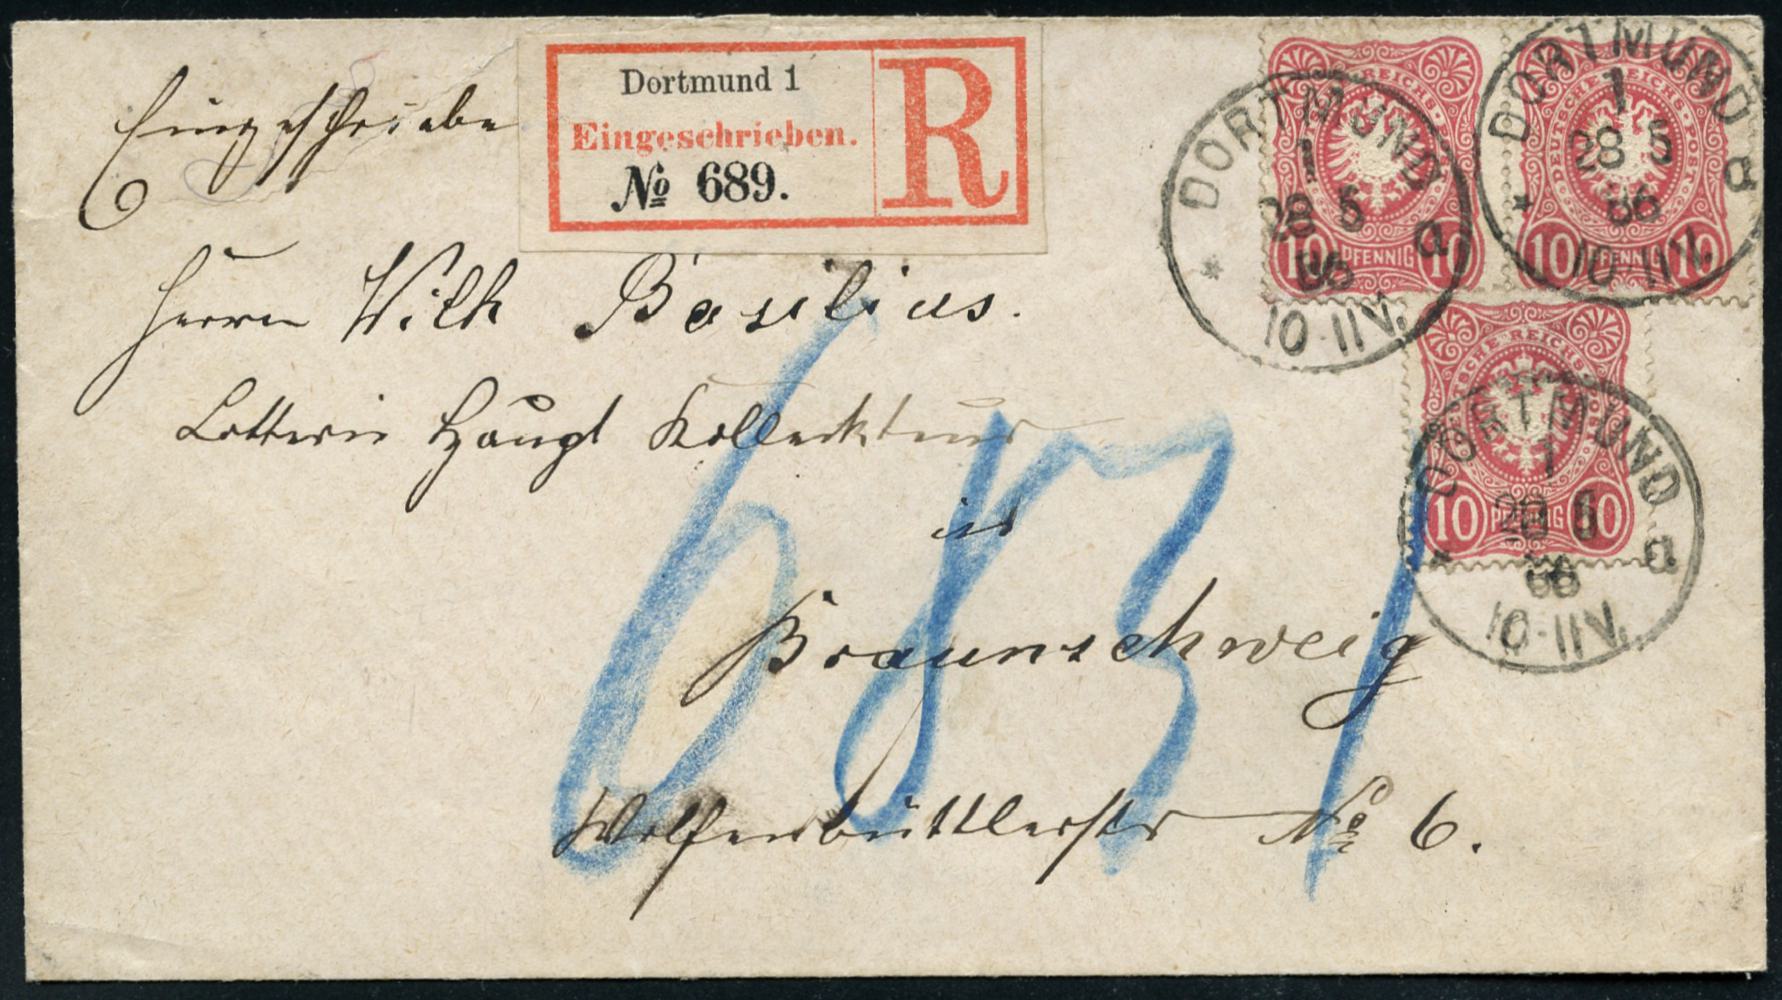 Eingeschrieben
Dortmund 1
Eingeschrieben.
№ 689.
R
Herrn Wilh Basilius.
Lotterie Haupt Kollekteur
in
Braunschweig
Wolfenbüttlerstr No 6.
DEUTSCHE REICHS-POST
10 PFENNIG 10
DORTMUND
1
28 5
86
* a
10-11V.
DEUTSCHE REICHS-POST
10 PFENNIG 10
DORTMUND
1
28 5
86
* a
10-11V.
DEUTSCHE REICHS-POST
10 PFENNIG 10
DORTMUND
1
28 5
86
* a
10-11V.